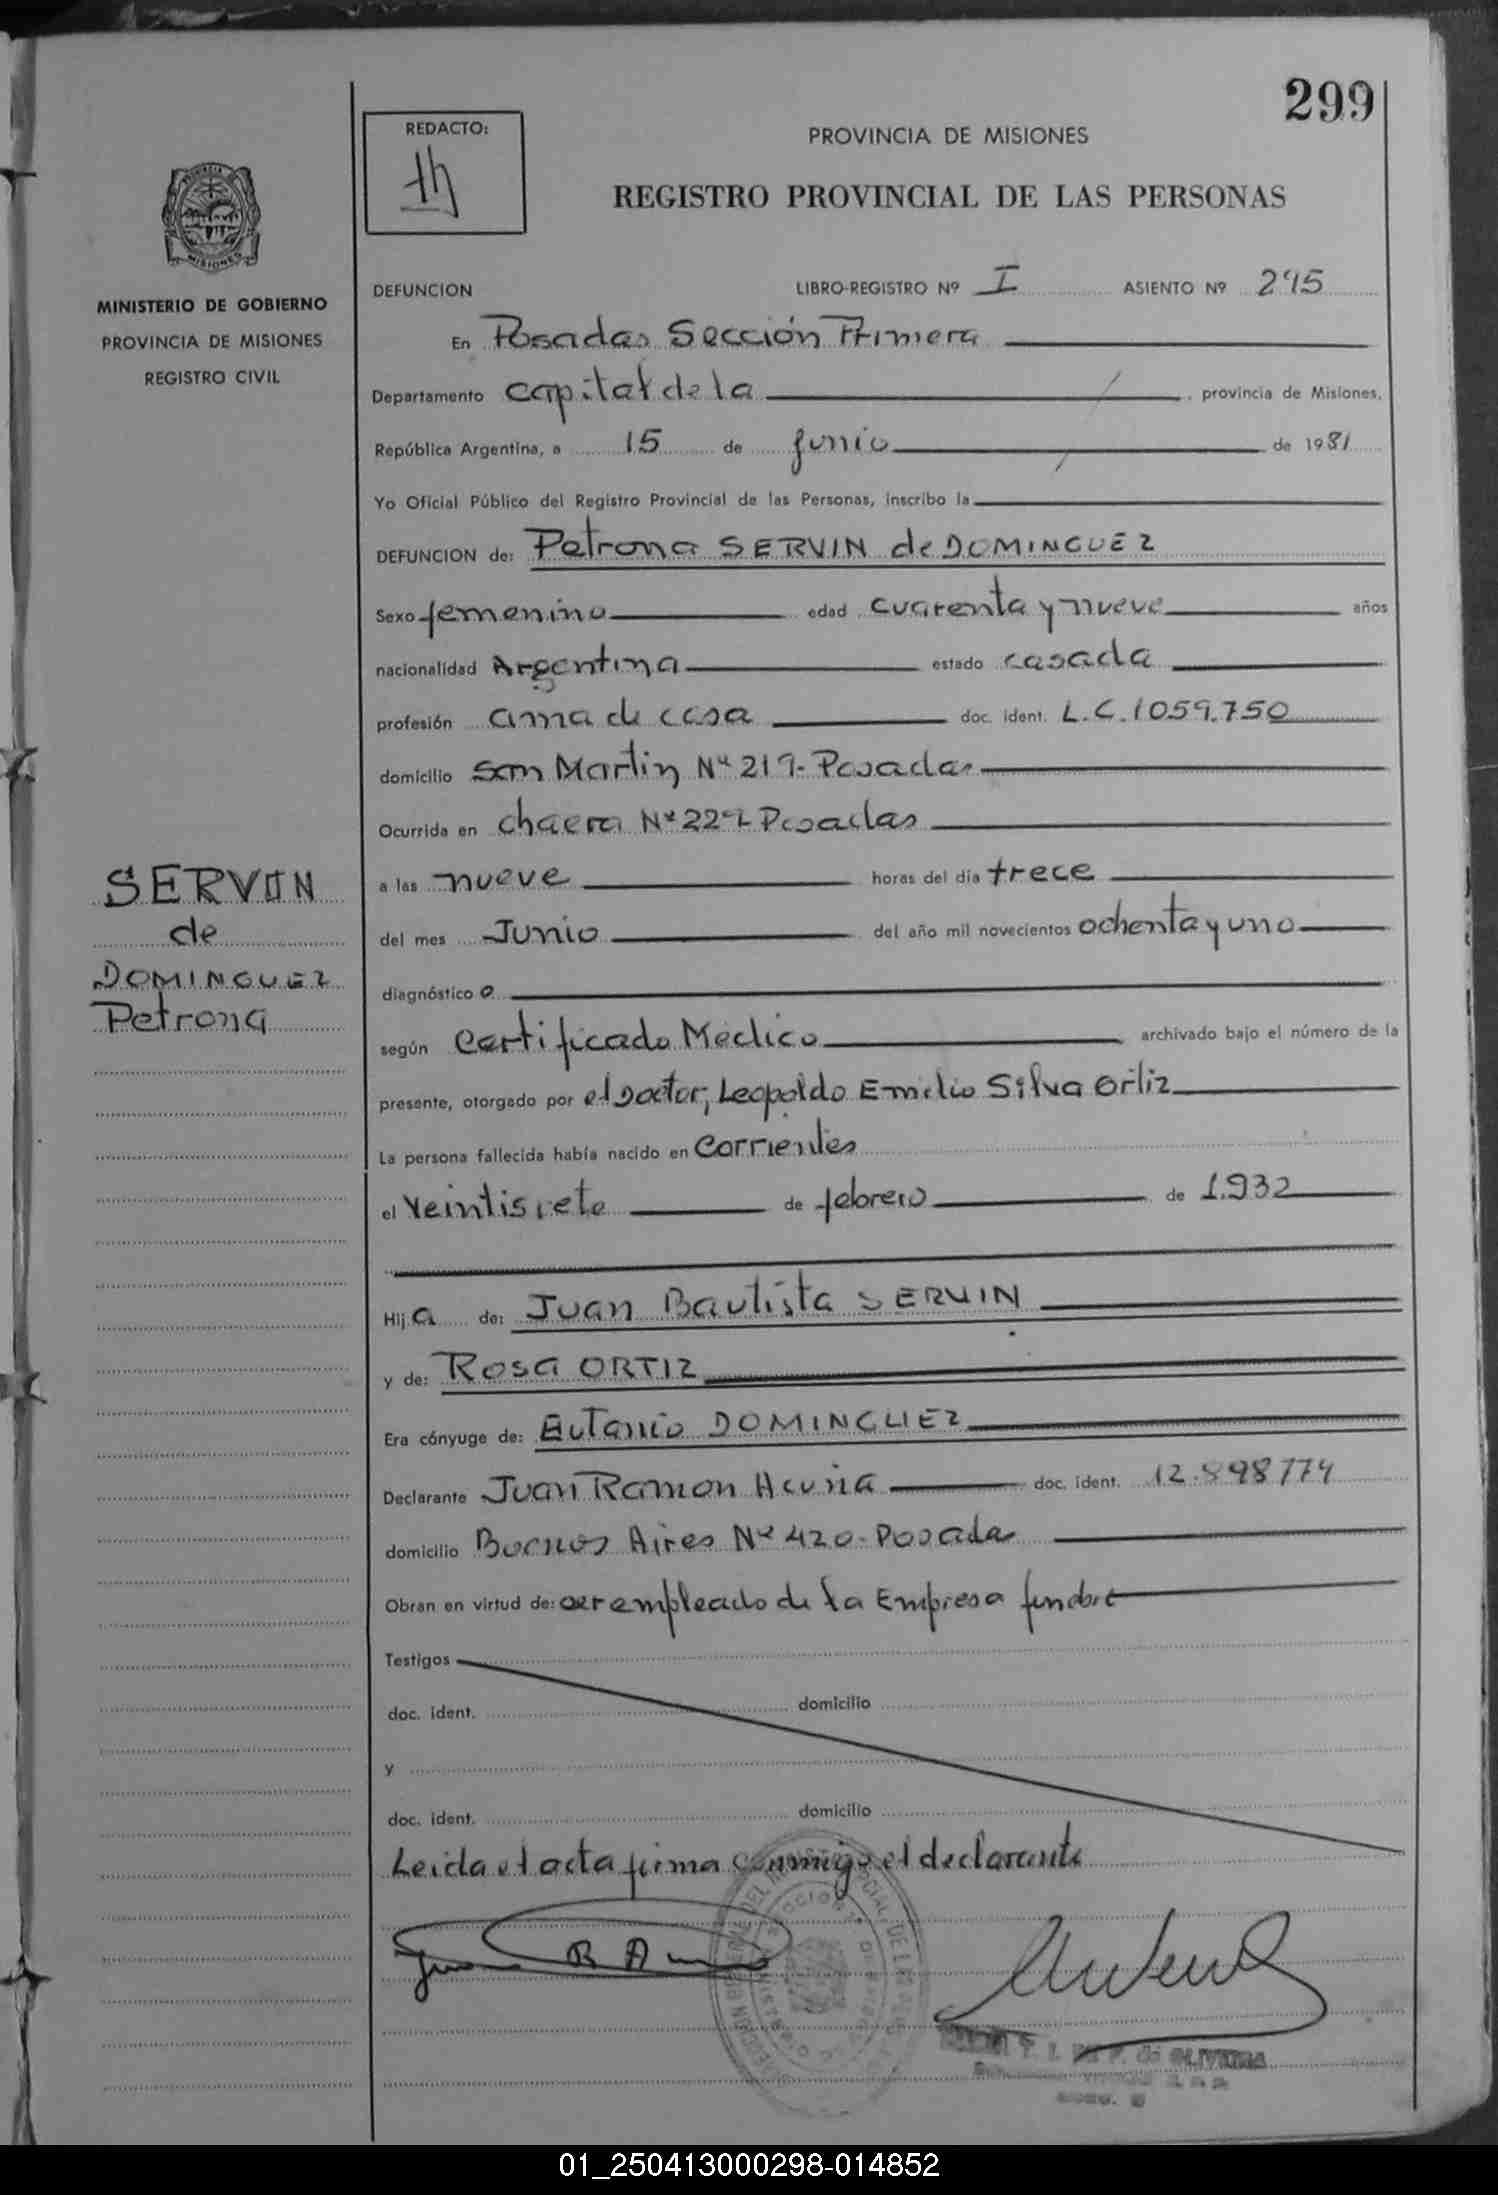 299
REDACTO:
PROVINCIA DE MISIONES
REGISTRO PROVINCIAL DE LAS PERSONAS
MINISTERIO DE GOBIERNO
PROVINCIA DE MISIONES
REGISTRO CIVIL
DEFUNCION LIBRO-REGISTRO Nº I ASIENTO Nº 295
En Posadas Sección Primera
Departamento Capital de la , provincia de Misiones,
República Argentina, a 15 de junio de 1981
Yo Oficial Público del Registro Provincial de las Personas, inscribo la
DEFUNCION de: Petrona SERVIN de DOMINGUEZ
Sexo femenino edad cuarenta y nueve años
nacionalidad Argentina estado casada
profesión ama de casa doc. ident. L.C.1059.750
domicilio San Martin Nº 219- Posadas
Ocurrida en chacra Nº Posadas
a las nueve horas del día trece
del mes Junio del año mil novecientos ochenta y uno
diagnóstico
según Certificado Medico archivado bajo el número de la
presente, otorgado por el Doctor, Leopoldo Emilio Silva Ortiz
La persona fallecida había nacido en Corrientes
el Veintisiete de febrero de 1.932
Hij a de: Juan Bautista SERVIN
y de: Rosa ORTIZ
Era cónyuge de: DOMINGUEZ
Declarante Juan Ramon Acuña doc. ident. 12.898774
domicilio Buenos Aires Nº 420- Posadas
Obran en virtud de: ser empleado de la Empresa funebre
Testigos
doc. ident. domicilio
y
doc. ident. domicilio
Leida el acta firma conmigo el declarante
SERVIN
de
DOMINGUEZ
Petrona
de OLIVEIRA
01_250413000298-014852